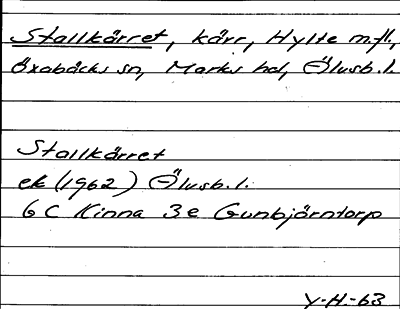 Stallkärret, kärr, Hylte m.fl.,
Öxabäcks sn, Marks hd, Älvsb. l.
Stallkärret
ek (1962) Älvsb. l.
6 C Kinna 3 e Gunbjörntorp
Y.H.-63